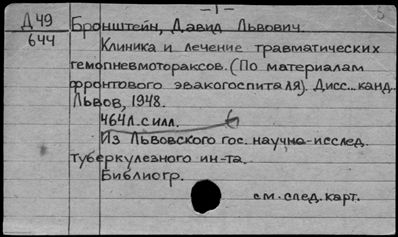 – 1 –
Д 49 Бронштейн, Давид Львович.
644
Клиника и лечение травматических
гемопневмотораксов. (По материалам
фронтового эвакогоспиталя). Дисс... канд..
Львов, 1948.
464 л. с илл.
Из Львовского гос. научно-исслед.
туберкулезного ин-та.
Библиогр.
см. след. карт.